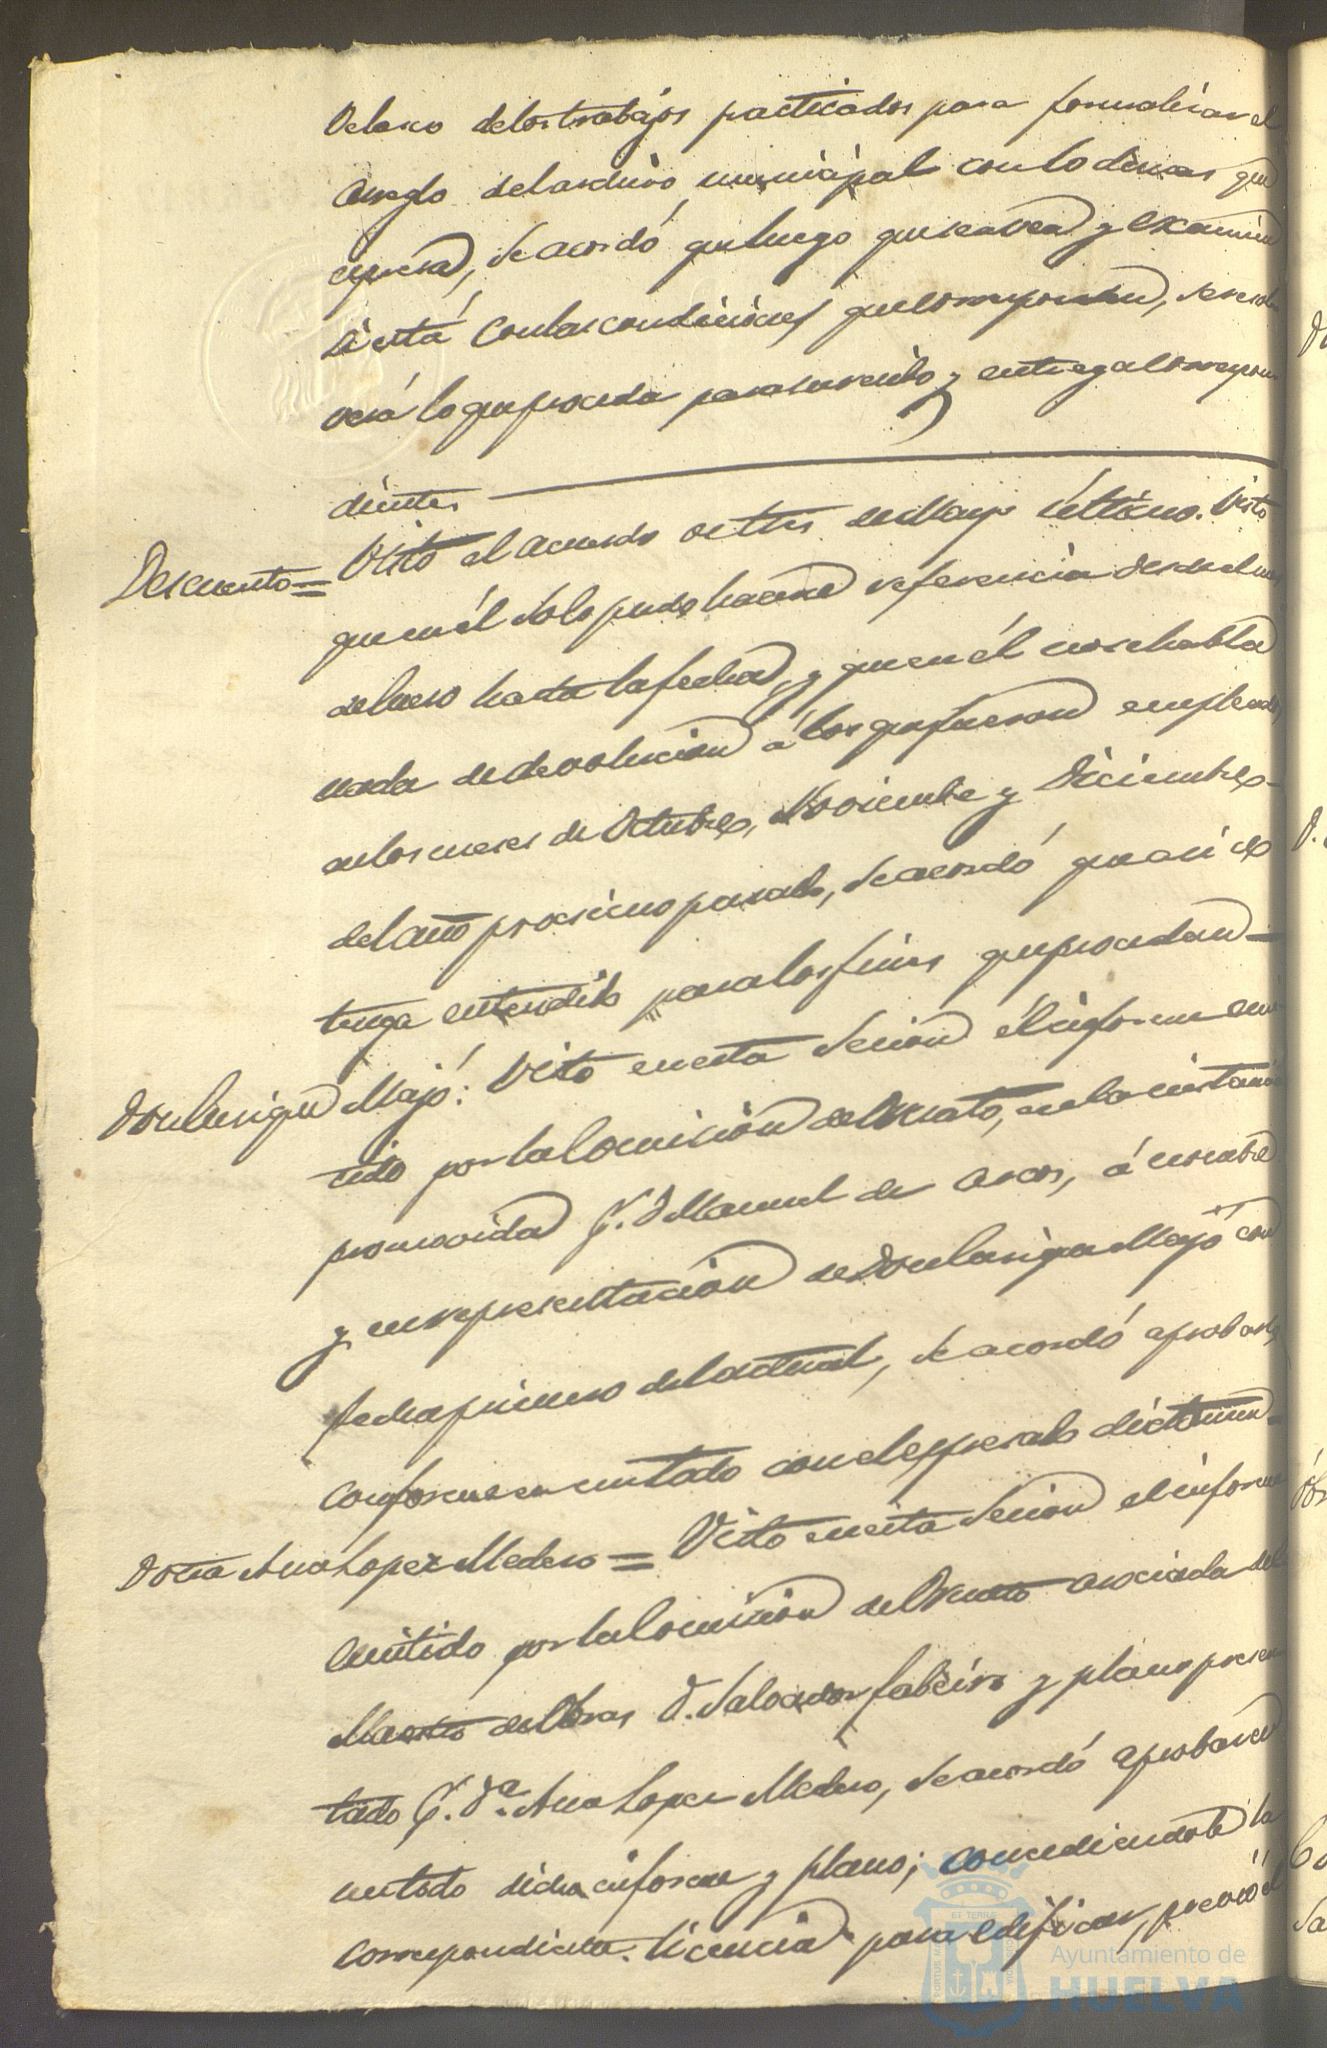 Velasco delos trabajos practicados para formalizar el
arreglo del archivo municipal con lo demas que
expresa, se acordó que luego que se vea y examine
si está con las condiciones que corresponden, se resol
verá lo que proceda para su recibo y entrega correspon
dientes
Descuento = Visto el acuerdo de tres de Mayo último. Visto
que en él solo pudo hacerse referencia desde el mes
de Enero hasta la fecha, y que en él no se habla
nada de devolucion á los que fueron empleados
en los meses de Octubre, Noviembre y Diciembre
del año procsimo pasado, se acordó que asi se
tenga entendido para los fines que procedan
Don Enrique Majó: Visto en esta Sesion el informe emi
tido por la Comision de Ornato, en la instancia
promovida p.r D. Manuel de Arcos, á nombre
y en representacion de Don Enrique Majó con
fecha primero del actual, se acordó aprobarlo
conforme en un todo con el espresado dictamen
Doña Ana Lopez Medero = Visto en esta Sesion el informe
emitido por la Comision del Ornato asociada del
Maestro de Obras D. Salvador y plano presen
tado p.r D.ª Ana Lopez Medero, se acordó aprobar en
un todo dicho informe y plano; concediendole la
correspondiente licencia para edificar, previo el
Ayuntamiento de
HUELVA